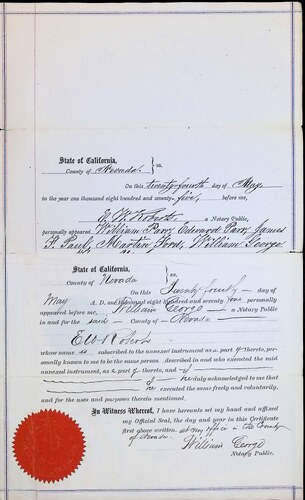 State of California,
County of Nevada } ss.
On this twenty fourth day of May
in the year one thousand eight hundred and seventy-five, before me,
E. W. Roberts, a Notary Public,
personally appeared William Parr, Edward Parr, James
F. Paul, Martin Ford, William George
State of California,
County of Nevada } ss.
On this Twenty fourth day of
May A. D. one thousand eight hundred and seventy five personally
appeared before me, William George a Notary Public
in and for the said County of Nevada
E W Roberts
whose name is subscribed to the annexed instrument as a part thereto, per-
sonally known to me to be the same person described in and who executed the said
annexed instrument, as a part thereto, and of
of duly acknowledged to me that
he executed the same freely and voluntarily,
and for the uses and purposes therein mentioned.
In Witness Whereof, I have hereunto set my hand and affixed
my Official Seal, the day and year in this Certificate
first above written. at my office in the County
of Nevada
William George
Notary Public.